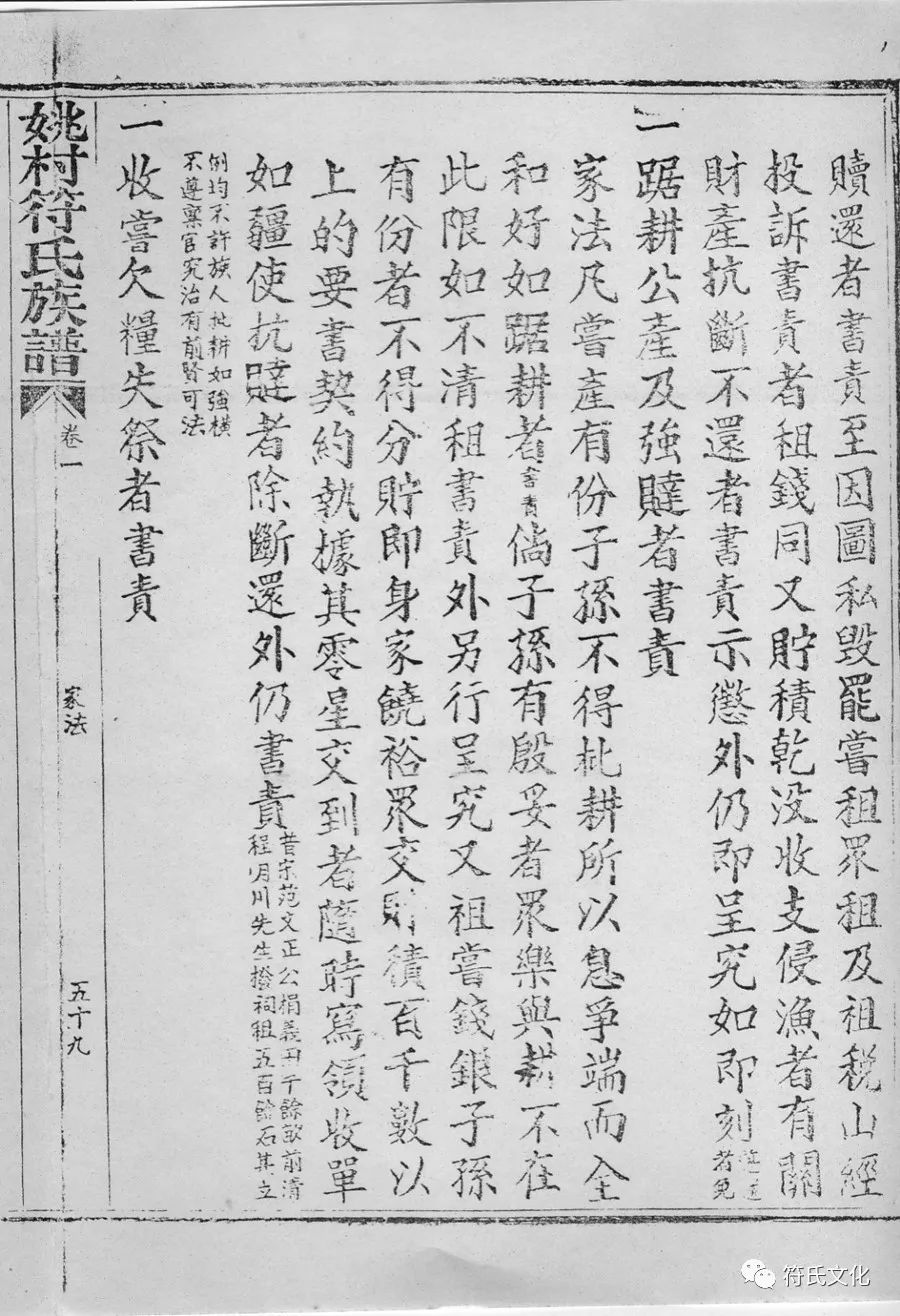 贖還者書責至因圖私毀罷嘗租眾租及祖税山經
投訴書責者租錢同又貯積乾没收支侵漁者有關
財產抗斷不還者書責示懲外仍即呈究如即刻
者免
一踞耕公產及強躂者書責
家法凡嘗產有份子孫不得批耕所以息爭端而全
和好如踞耕者書責倘子孫有殷妥者眾樂與耕不在
此限如不清租書責外另行呈究又祖嘗錢銀子孫
有份者不得分貯即身家饒裕眾交貯積百千數以
上的要書契約執據其零星交到者隨時寫領收單
如疆使抗躂者除斷還外仍書責
昔宗范文正公捐義田千餘畝前清
程月川先生撥祠租五百餘石其立
例均不許族人批耕如強橫
不遵稟官究治有前賢可法
一收嘗欠糧失祭者書責
姚村符氏族譜
卷一
家法
五十九
符氏文化